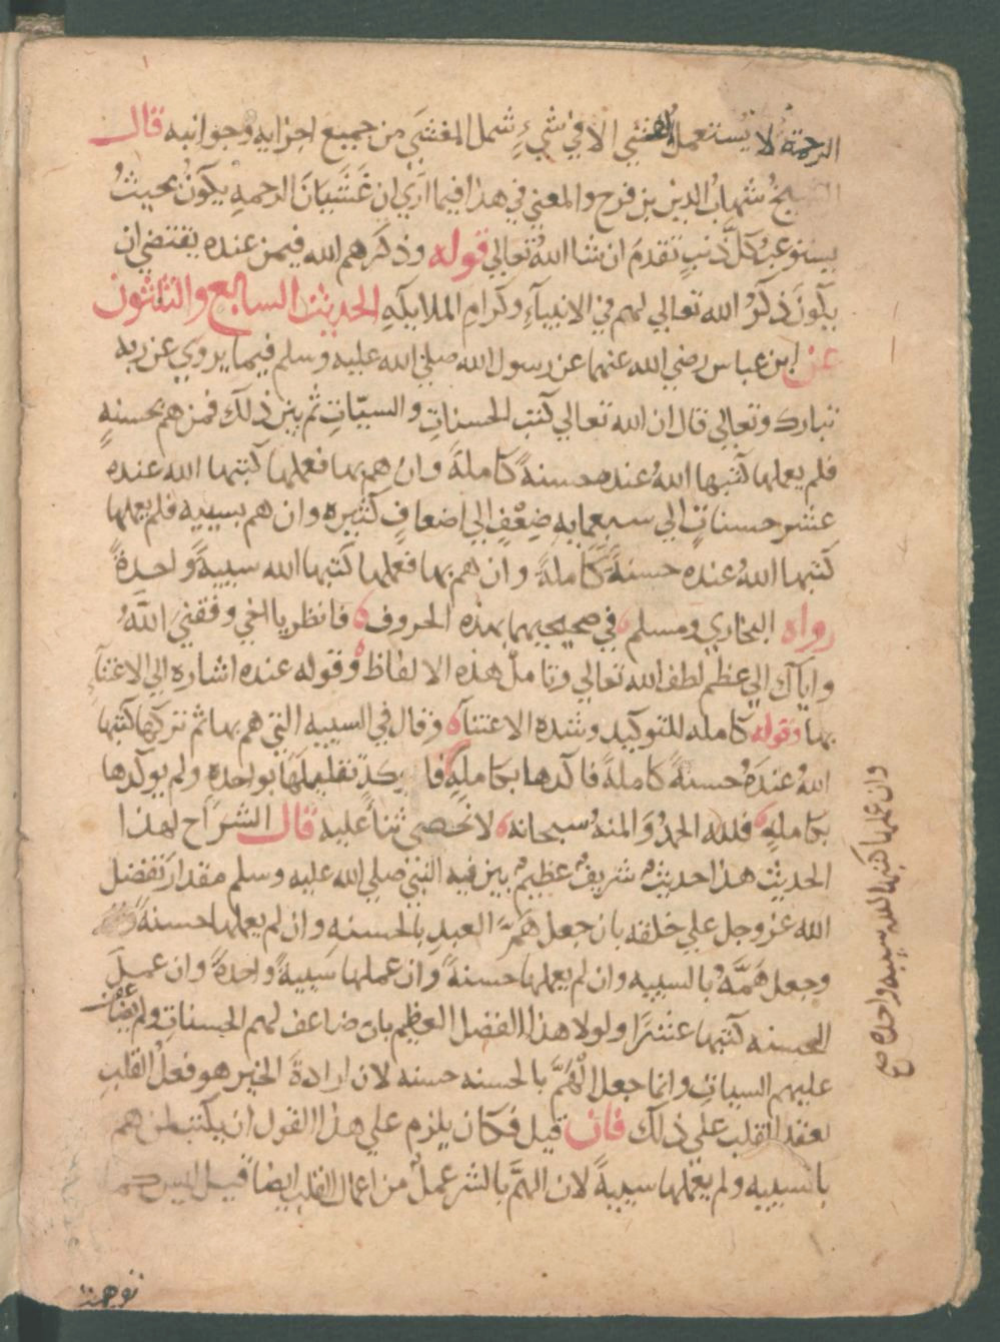 الرحمة لا يستعمل الا في شيءٍ شمل المغشي من جميع اجزايه وجوانبه قال
الشيخ شهاب الدين بن فرح والمعني في هذا فيما اري ان غشيان الرحمة يكون بحيث
يستوعب كل ذنبٍ تقدم ان شا الله تعالي قوله وذكرهم الله فيمن عنده يقتضي ان
يكون ذكر الله تعالي لهم في الانبيآء وكرام الملايكه الحديث السابع والثلثون
عن ابن عباس رضي الله عنهما عن رسول الله صلي الله عليه وسلم فيما يروي عن ربه
تبارك وتعالي قال ان الله تعالي كتب الحسنات والسيّات ثم بين ذلك فمن هم بحسنةٍ
فلم يعملها كتبها الله عنده حسنةً كاملةً وان هم بها فعملها كتبها الله عنده
عشر حسناتٍ الي سبعمايه ضِعْفٍ الي اضعافٍ كثيره وان هم بسييه فلم يعملها
كتبها الله عنده حسنةً كاملةً وان هم بها فعملها كتبها الله سييةً واحدةً
رواه البخاري ومسلم في صحيحيهما بهذه الحروف فانظر يا اخي وفقني اللهُ
واياك الي عظم لطف الله تعالي وتامل هذه الالفاظ وقوله عنده اشاره الي الاعتنآءِ
بها وقوله كامله للتوكيد وشده الاعتنآ وقال في السييه التي هم بها ثم تركها كتبها
الله عنده حسنةً كاملةً فاكدها بكاملةٍ تقليلها بواحده ولم يوكدها
بكاملهٍ فلله الحمدُ والمنهُ سبحانه لا نحصي ثناً عليه قال الشراح لهذا
الحديث هذا حديث شريف عظيم بين فيه النبي صلي الله عليه وسلم مقدار تفضل
الله عز وجل علي خلقه بان جعل هَمَّ العبد بالحسنه وان لم يعملها حسنةً
وجعل هَمَّهُ بالسييه وان لم يعملها حسنةً وان عملها سييةً واحدةً وان عمل
الحسنه كتبها عشرًا ولولا هذا الفضل العظيم بان ضاعف لهم الحسنات ولم يضاعف
عليهم السيات وانما جعل الهَمَّ بالحسنه حسنه لان ارادة الخير هو فعل القلب
لعقد القلب علي ذلك فان قيل فكان يلزم علي هذا القول ان يكتب لمن هم
بالسييه ولم يعملها سييةً لان الهمّ بالشر عمل من اعمال القلب ايضاً قيل ليس كما
توهمت
وان عملها كتبها الله سييه واحده صح